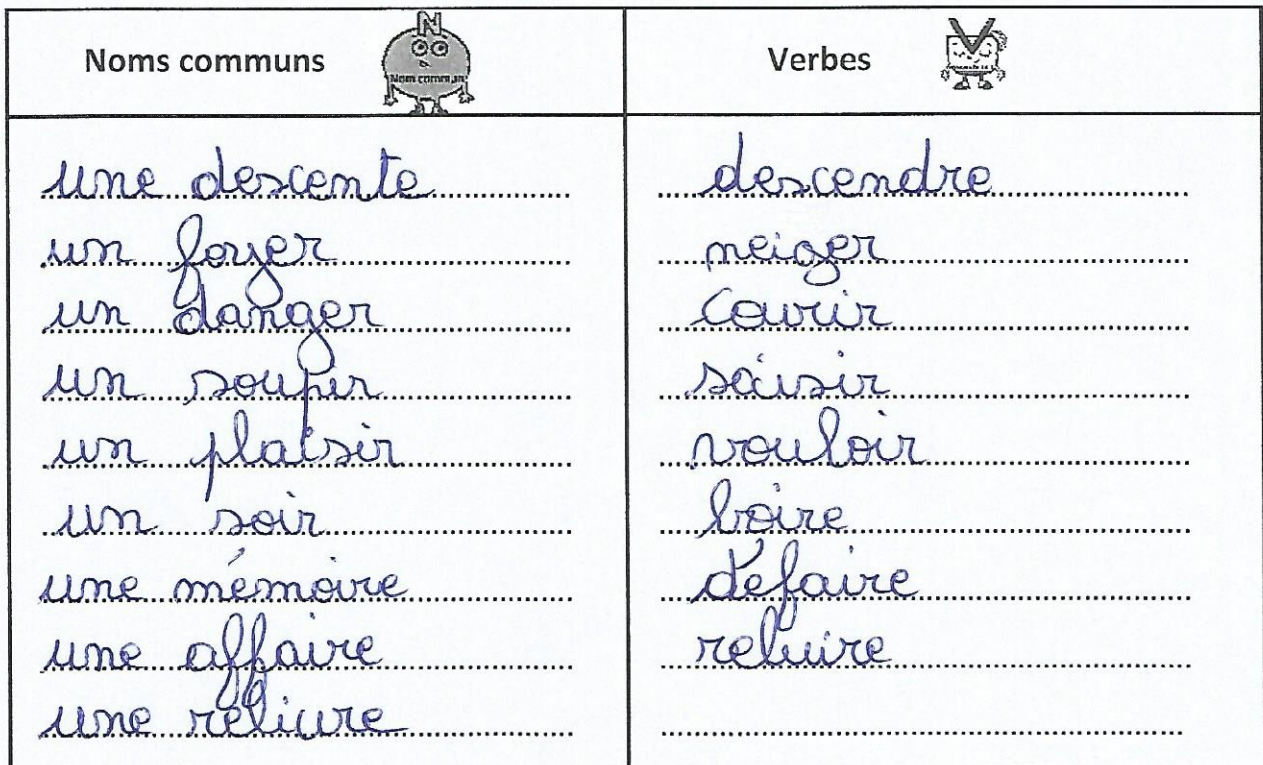 Noms communs
Verbes
N
Nom commun
V
une descente
descendre
un foyer
neiger
un danger
courir
un soupir
saisir
un plaisir
vouloir
un soir
boire
une mémoire
défaire
une affaire
reluire
une reliure